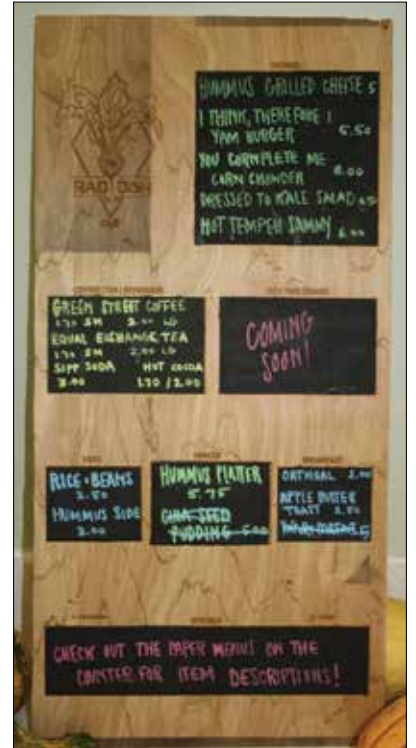 RAD DISH
CAFE
ENTREES
HUMMUS GRILLED CHEESE 5
I THINK, THEREFORE I
YAM BURGER 5.50
YOU CORNPLETE ME
CORN CHOWDER 6.00
DRESSED TO KALE SALAD
HOT TEMPEH SAMMY 6.00
GREEN STREET COFFEE
1.70 SM 2.00 LG
EQUAL EXCHANGE TEA
1.70 SM 2.00 LG
SIPP SODA HOT COCOA
3.00 1.70 / 2.00
COMING
SOON!
SIDES
RICE + BEANS
2.50
HUMMUS SIDE
2.00
SNACKS
HUMMUS PLATTER
5.75
CHIA SEED
PUDDING 5.00
BREAKFAST
OATMEAL 3.00
APPLE BUTTER
TOAST 2.50
SPECIALS
CHECK OUT THE PAPER MENUS ON THE
COUNTER FOR ITEM DESCRIPTIONS!